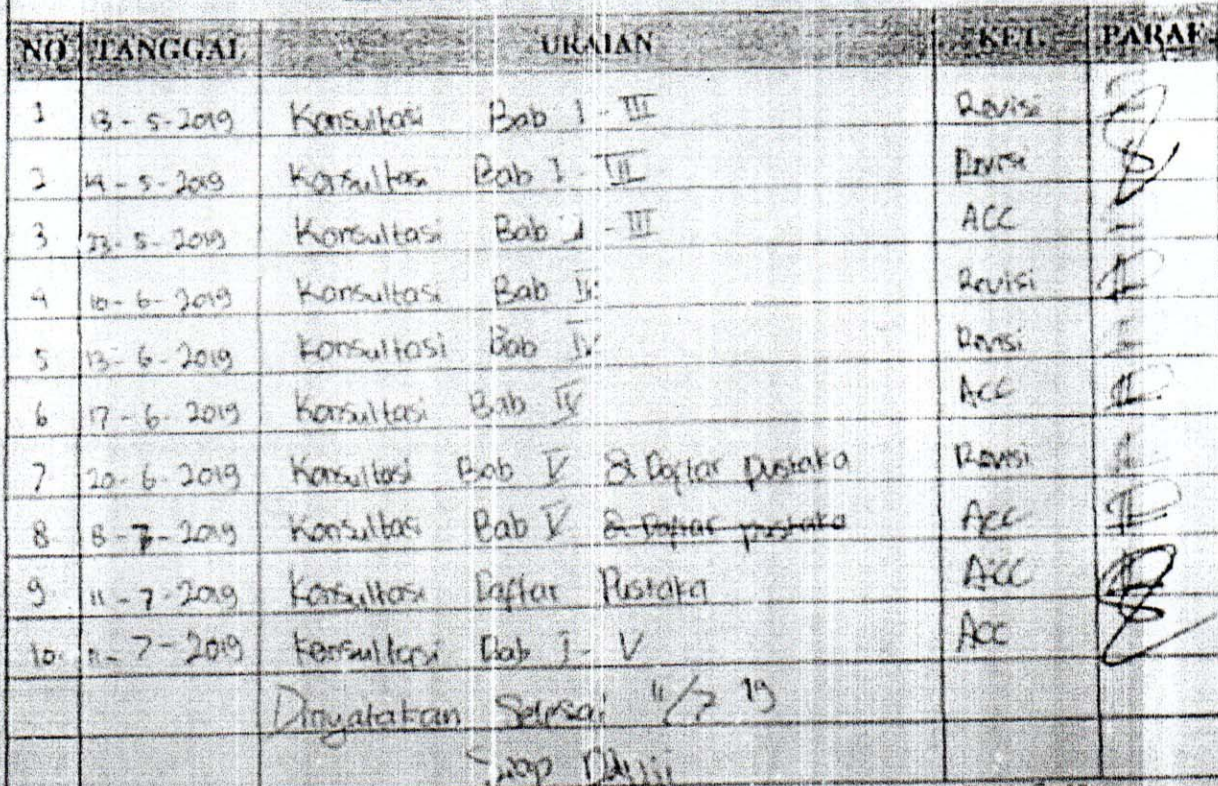 NO TANGGAL URAIAN KET. PARAF
1 13-5-2019 Konsultasi Bab I-III Revisi
2 14-5-2019 Konsultasi Bab I-III Revisi
3. 23-5-2019 Konsultasi Bab I-III ACC
4 10-6-2019 Konsultasi Bab Revisi
5 13-6-2019 Konsultasi Bab IV Revisi
6 17-6-2019 Konsultasi Bab IV Acc
7 20-6-2019 Konsultasi Bab V & Daftar pustaka Revisi
8. 8-7-2019 Konsultasi Bab V & Daftar pustaka Acc
9 11-7-2019 Konsultasi Daftar Pustaka Acc
10. 11-7-2019 Konsultasi Bab I-V Acc
Dinyatakan Selesai 11/7 19
Siap Diuji